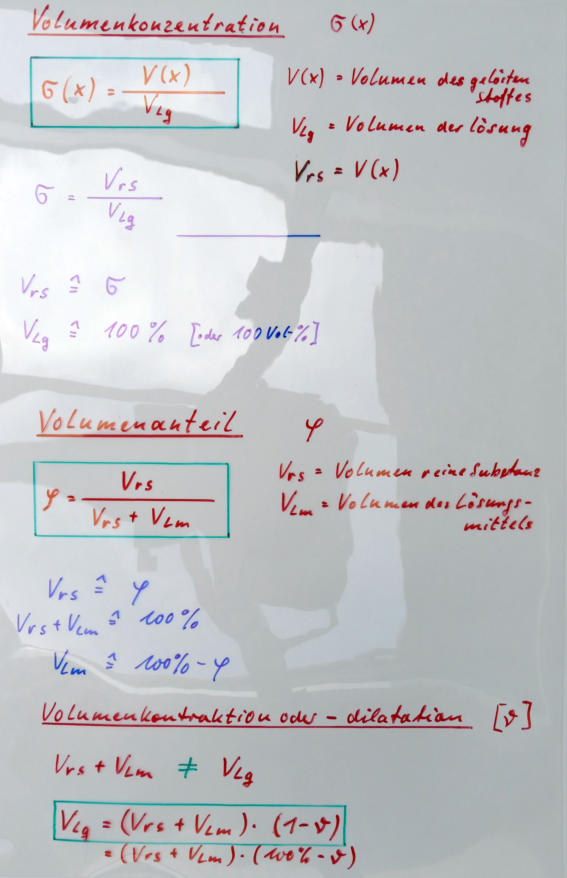 Volumenkonzentration σ(x)
σ(x) = V(x) / V_Lg
V(x) = Volumen des gelösten
Stoffes
V_Lg = Volumen der Lösung
V_rs = V(x)
σ = V_rs / V_Lg
V_rs ≙ σ
V_Lg ≙ 100% [oder 100 Vol-%]
Volumenanteil φ
φ = V_rs / (V_rs + V_Lm)
V_rs = Volumen reine Substanz
V_Lm = Volumen des Lösungs-
mittels
V_rs ≙ φ
V_rs + V_Lm ≙ 100%
V_Lm ≙ 100% - φ
Volumenkontraktion oder - dilatation [ϑ]
V_rs + V_Lm ≠ V_Lg
V_Lg = (V_rs + V_Lm) · (1-ϑ)
= (V_rs + V_Lm) · (100% - ϑ)